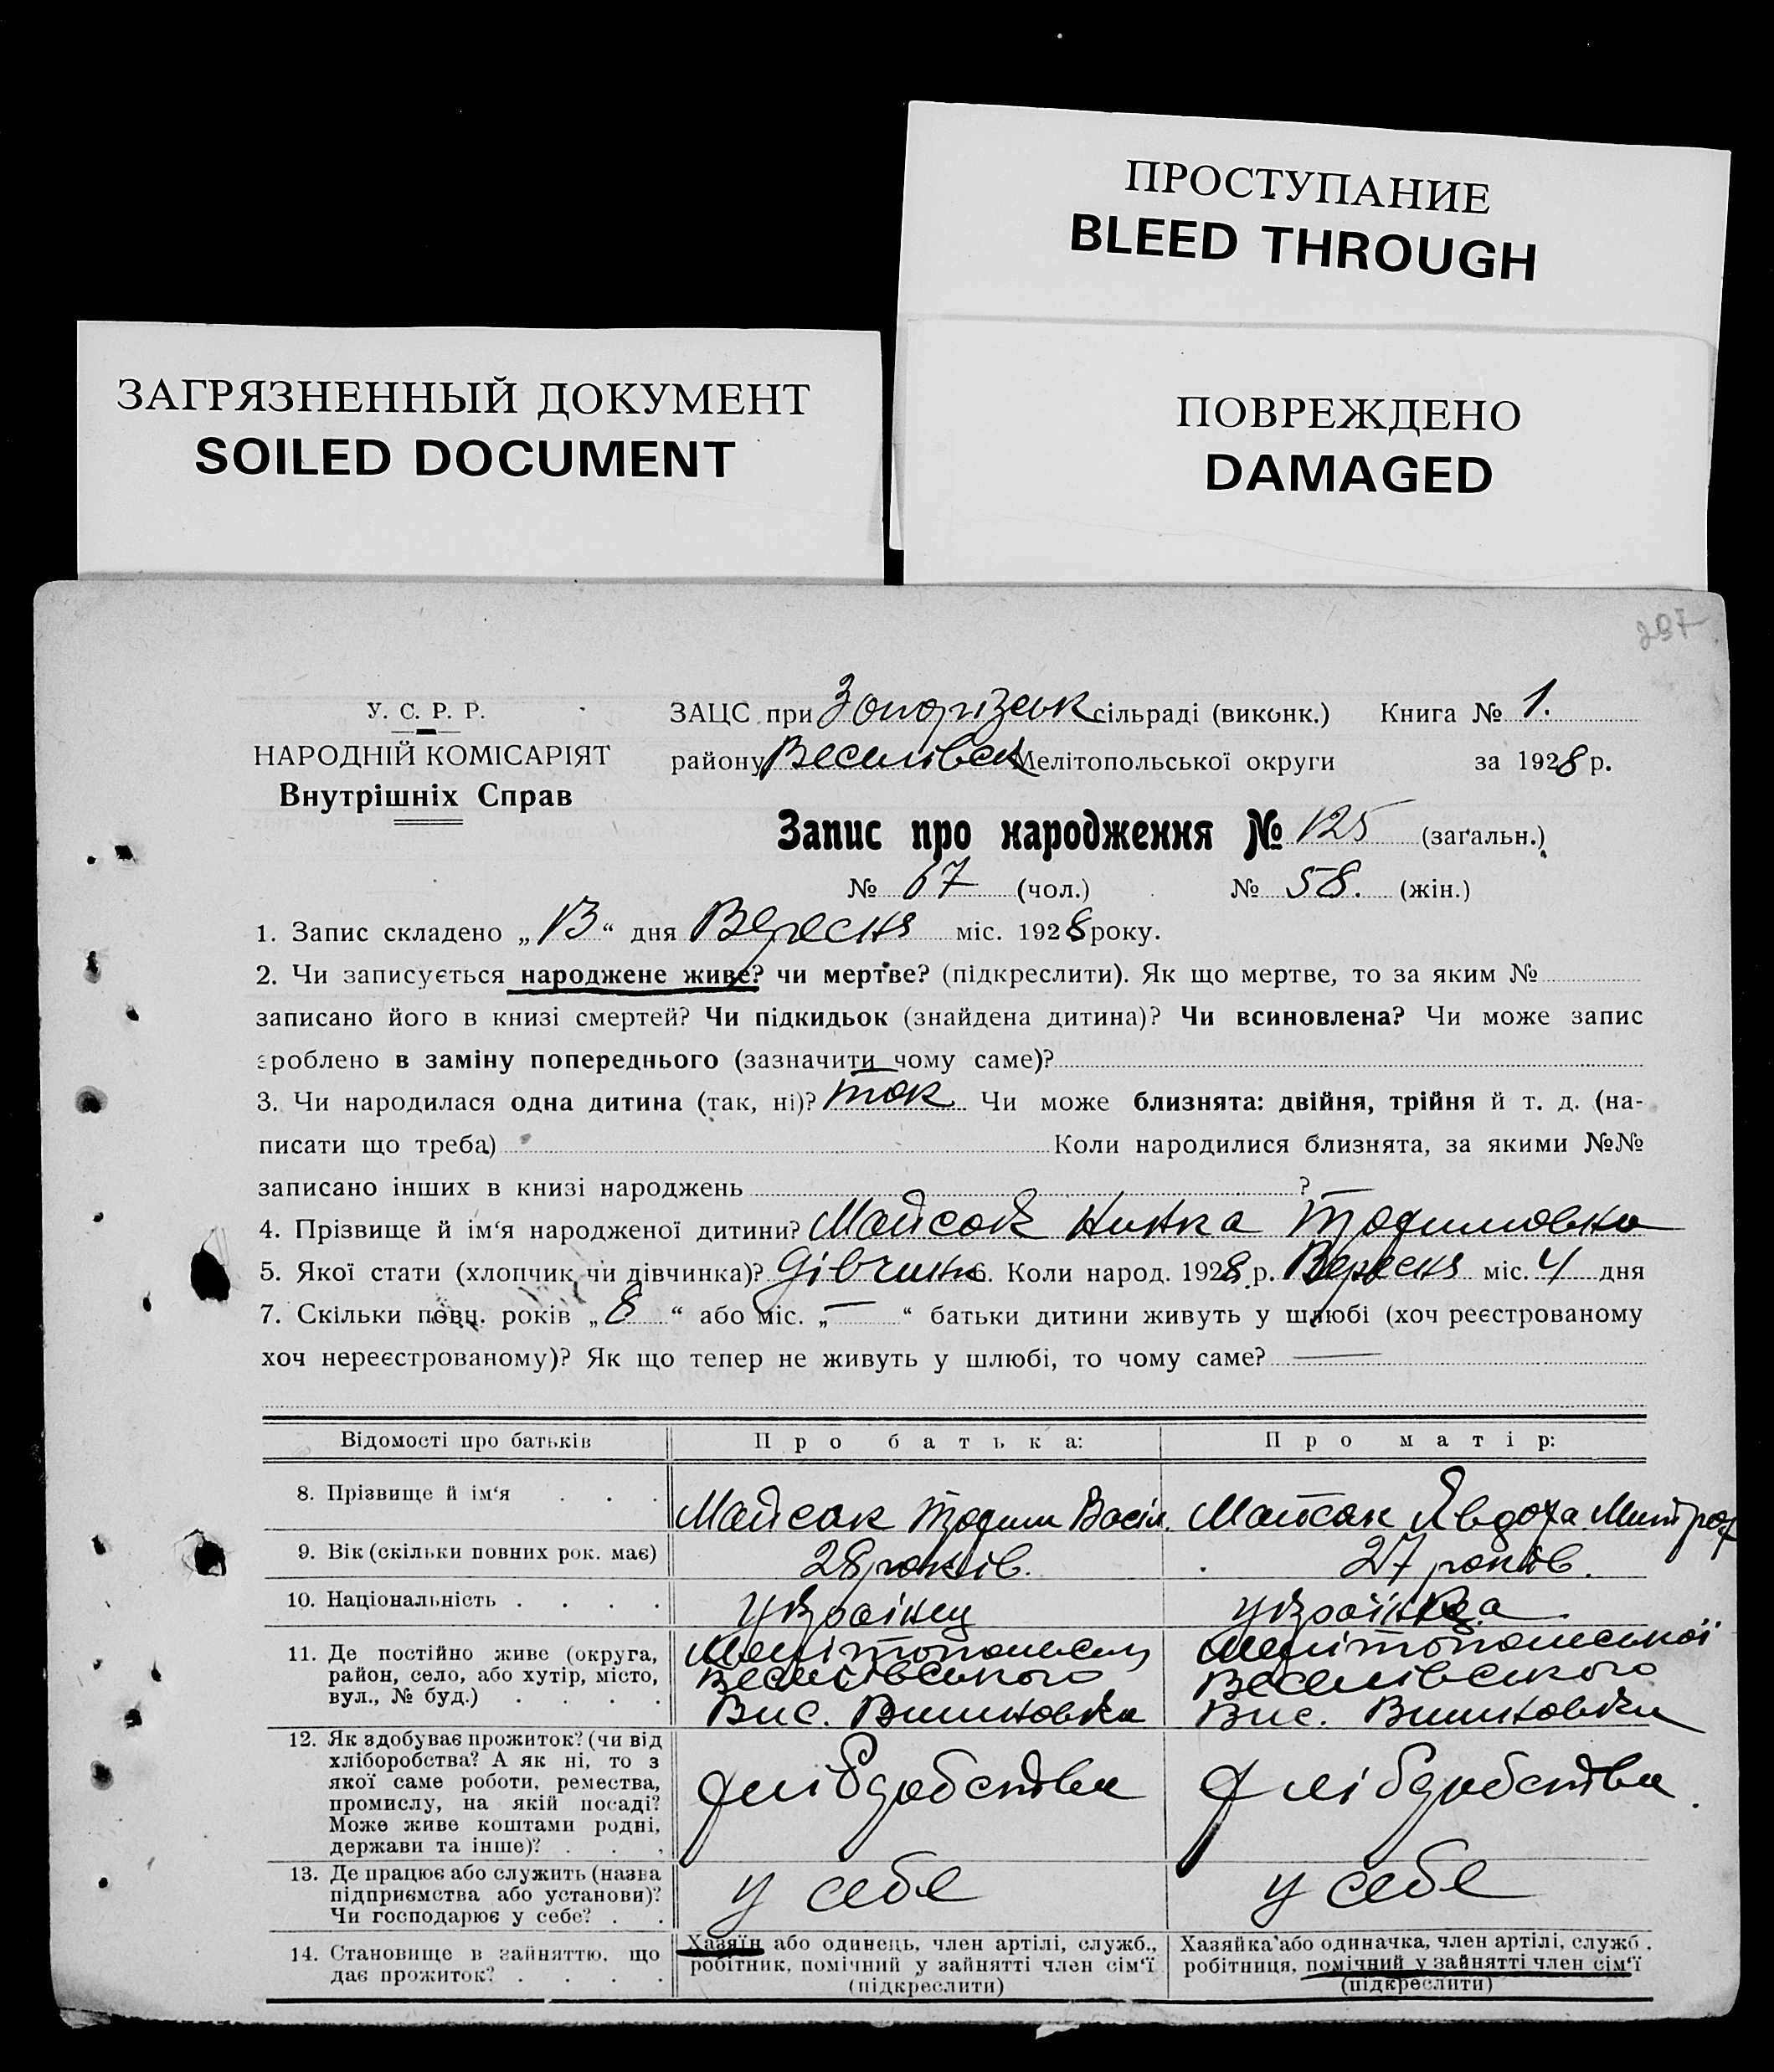 ПРОСТУПАНИЕ
BLEED THROUGH
ЗАГРЯЗНЕННЫЙ ДОКУМЕНТ
SOILED DOCUMENT
ПОВРЕЖДЕНО
DAMAGED
297
У. С. Р. Р.
НАРОДНІЙ КОМІСАРІЯТ
Внутрішніх Справ
ЗАЦС при Запорізськ сільраді (виконк.) Книга № 1.
району Веселівськ Мелітопольської округи за 1928 р.
Запис про народження № 125 (загальн.)
№ 67 (чол.) № 58. (жін.)
1. Запис складено „13“ дня Вересня міс. 1928 року.
2. Чи записується народжене живе? чи мертве? (підкреслити). Як що мертве, то за яким №
записано його в книзі смертей? Чи підкидьок (знайдена дитина)? Чи всиновлена? Чи може запис
зроблено в заміну попереднього (зазначити чому саме)?
3. Чи народилася одна дитина (так, ні)? так Чи може близнята: двійня, трійня й т. д. (на-
писати що треба) Коли народилися близнята, за якими №№
записано інших в книзі народжень ?
4. Прізвище й ім‘я народженої дитини? Майсак Нинка Трофимовна
5. Якої стати (хлопчик чи дівчинка)? Дівчинка 6. Коли народ. 1928 р. Вересня міс. 4 дня
7. Скільки повн. років „8“ або міс. „—“ батьки дитини живуть у шлюбі (хоч реєстрованому
хоч нереєстрованому)? Як що тепер не живуть у шлюбі, то чому саме? —
Відомості про батьків Про батька: Про матір:
8. Прізвище й ім‘я . . . Майсак Трофим Васіл. Майсак Явдоха Митроф
9. Вік (скільки повних рок. має) 28 років. 27 років.
10. Національність . . . . Українец українка.
11. Де постійно живе (округа, район, село, або хутір, місто, вул., № буд.) . . . . Мелітопольськ Веселівського Вис. Вишновка Мелітопольської Веселівського Вис. Вишновка
12. Як здобуває прожиток? (чи від хліборобства? А як ні, то з якої саме роботи, ремества, промислу, на якій посаді? Може живе коштами родні, держави та інше)? . . . хліборобства хліборобства
13. Де працює або служить (назва підприємства або установи)? Чи господарює у себе? . . у себе у себе
14. Становище в зайняттю, що дає прожиток? . . . . Хазяїн або одинець, член артілі, служб., робітник, помічний у зайнятті член сім‘ї (підкреслити) Хазяйка або одиначка, член артілі, служб. робітниця, помічний у зайнятті член сім‘ї (підкреслити)